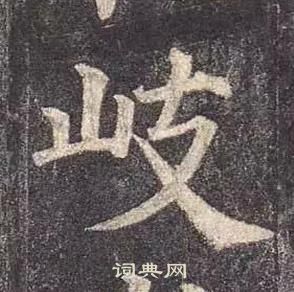 岐
词典网